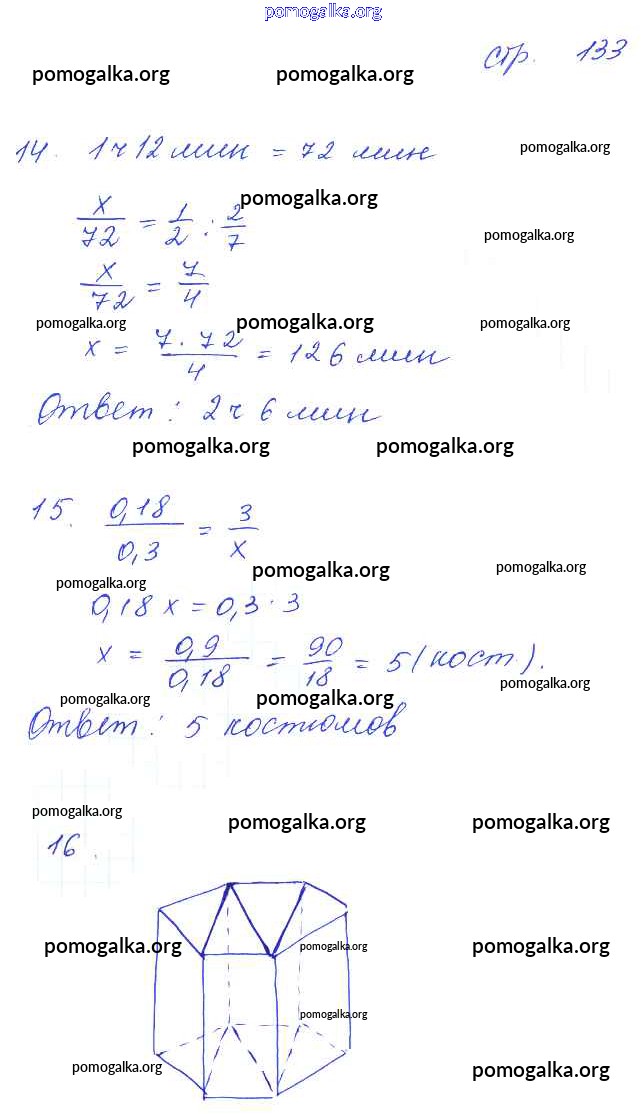 pomogalka.org
стр. 133
pomogalka.org pomogalka.org
14. 1ч 12 мин = 72 мин pomogalka.org
x/72 = 1/2 : 2/7 pomogalka.org
pomogalka.org
x/72 = 7/4
pomogalka.org pomogalka.org pomogalka.org
x = 7·72/4 = 126 мин
Ответ: 2ч 6 мин
pomogalka.org pomogalka.org
15. 0,18/0,3 = 3/x
pomogalka.org pomogalka.org pomogalka.org
0,18 x = 0,3·3
x = 0,9/0,18 = 90/18 = 5 (кост.).
pomogalka.org pomogalka.org pomogalka.org
Ответ: 5 костюмов
pomogalka.org pomogalka.org pomogalka.org
16.
pomogalka.org pomogalka.org pomogalka.org
pomogalka.org
pomogalka.org pomogalka.org